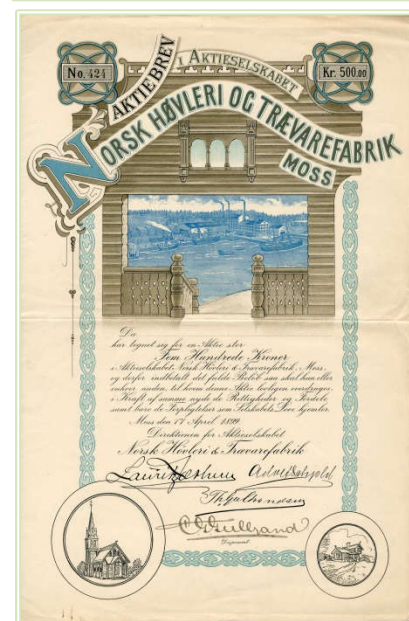 No. 424
AKTIEBREV
I AKTIESELSKABET
Kr. 500.00
NORSK HØVLERI OG TRÆVAREFABRIK
MOSS
Da
har tegnet sig for en Aktie stor
Fem Hundrede Kroner
i Aktieselskabet Norsk Høvleri & Trævarefabrik, Moss,
og derfor indbetalt det fulde Beløb saa skal han eller
enhver anden, til hvem denne Aktie lovligen overdrages,
i Kraft af samme nyde de Rettigheder og Fordele
samt bære de Forpligtelser som Selskabets Love hjemler.
Moss den 17 April 1899.
Direktionen for Aktieselskabet
Norsk Høvleri & Trævarefabrik
Disponent